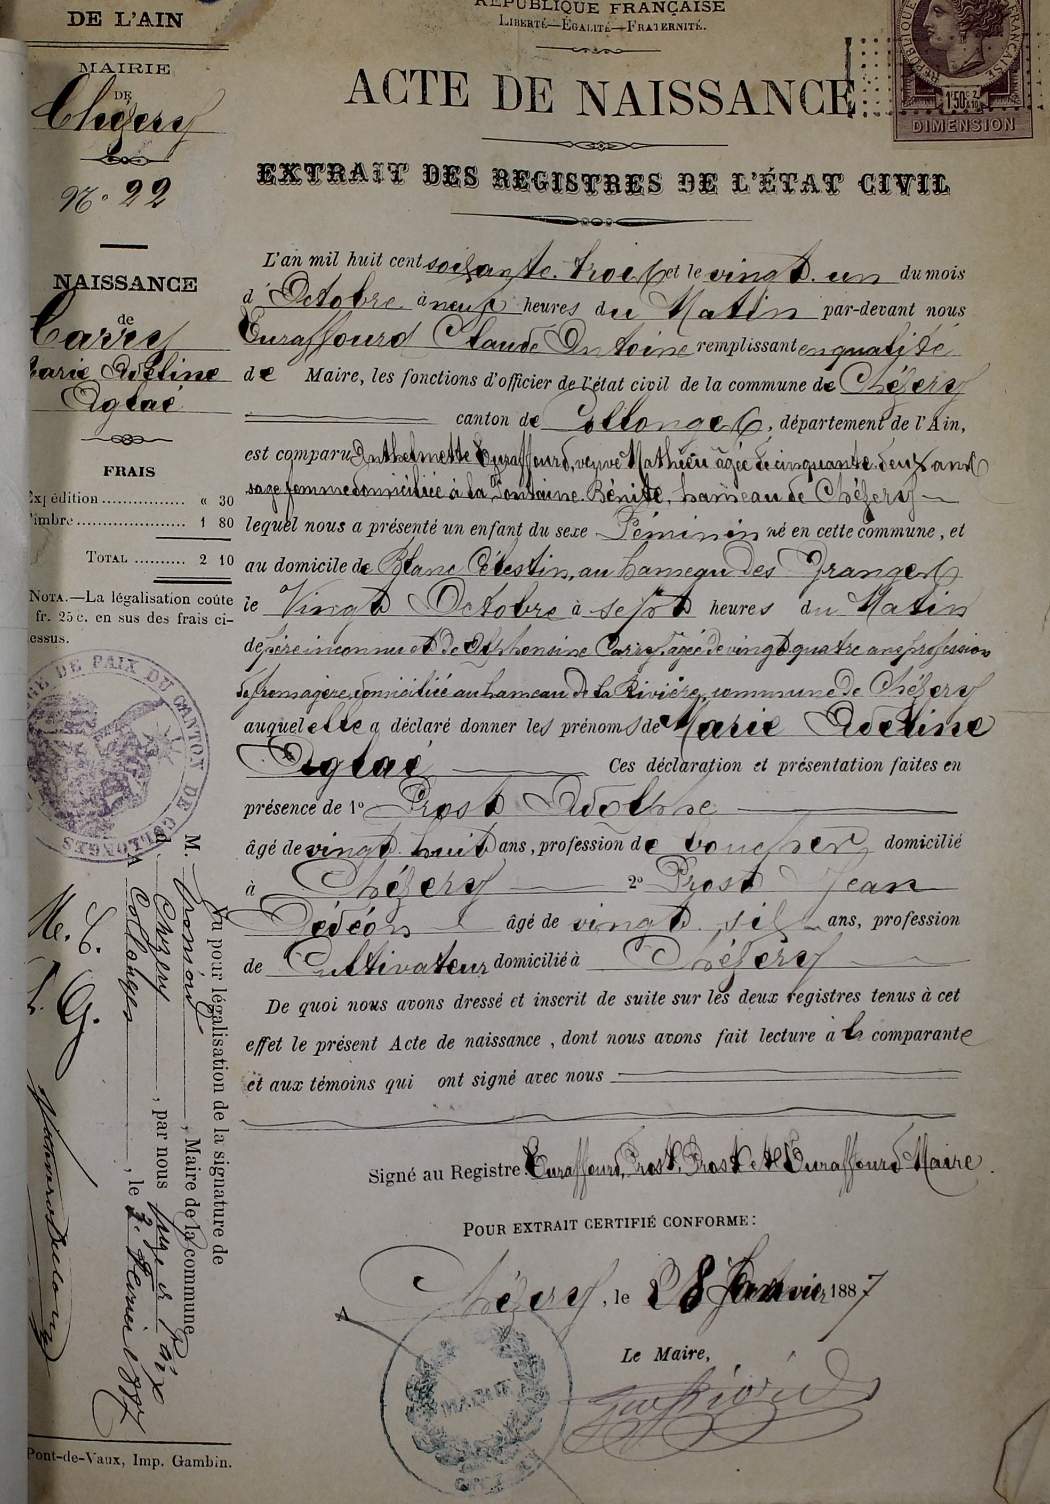 DE L'AIN
MAIRIE
DE
Chézery
N.º 22
NAISSANCE
de
Carry
Marie Adeline
Aglaé
FRAIS
Expédition ............... « 30
Timbre ..................... 1 80
TOTAL ............ 2 10
NOTA.—La légalisation coûte
fr. 25 c. en sus des frais ci-
dessus.
RÉPUBLIQUE FRANÇAISE
LIBERTÉ—EGALITÉ—FRATERNITÉ.
ACTE DE NAISSANCE
EXTRAIT DES REGISTRES DE L'ÉTAT CIVIL
L'an mil huit cent soixante. trois et le vingt. un du mois
d' Octobre à neuf heures du Matin par-devant nous
Duraffourd Claude Antoine remplissant en qualité
de Maire, les fonctions d'officier de l'état civil de la commune de Chézery
canton de Collonges, département de l'Ain,
est comparu Anthelmette Duraffourd, veuve Mathieu âgée de cinquante. deux ans
sage femme domiciliée à la Fontaine. Bénite, hameau de Chézery
lequel nous a présenté un enfant du sexe Féminin né en cette commune, et
au domicile de Blanc Célestin, au hameau des Granges
le Vingt Octobre à sept heures du Matin
de père inconnu et de Alphonsine Carry âgée de vingt quatre ans profession
de fromagère, domiciliée au hameau de la Rivière, commune de Chézery
auquel elle a déclaré donner les prénoms de Marie Adeline
Aglaé Ces déclaration et présentation faites en
présence de 1º Prost Adolphe
âgé de vingt. huit ans, profession de boucher domicilié
à Chézery 2º Prost Jean
Dédéon âgé de vingt. six ans, profession
de Cultivateur domicilié à Chézery
De quoi nous avons dressé et inscrit de suite sur les deux registres tenus à cet
effet le présent Acte de naissance, dont nous avons fait lecture à la comparante
et aux témoins qui ont signé avec nous
Signé au Registre: Duraffourd, Prost, Prost et Duraffourd Maire.
POUR EXTRAIT CERTIFIÉ CONFORME:
Chézery, le 28 Janvier 1887
Le Maire,
MAIRIE
RÉPUBLIQUE FRANÇAISE
1f50c 2/10
DIMENSION
DE PAIX DU CANTON DE COLLONGES
Vu pour légalisation de la signature de
M. , Maire de la commune
d Chézery, par nous Juge de Paix
A Collonges, le 3. Février 1887
Pont-de-Vaux, Imp. Gambin.